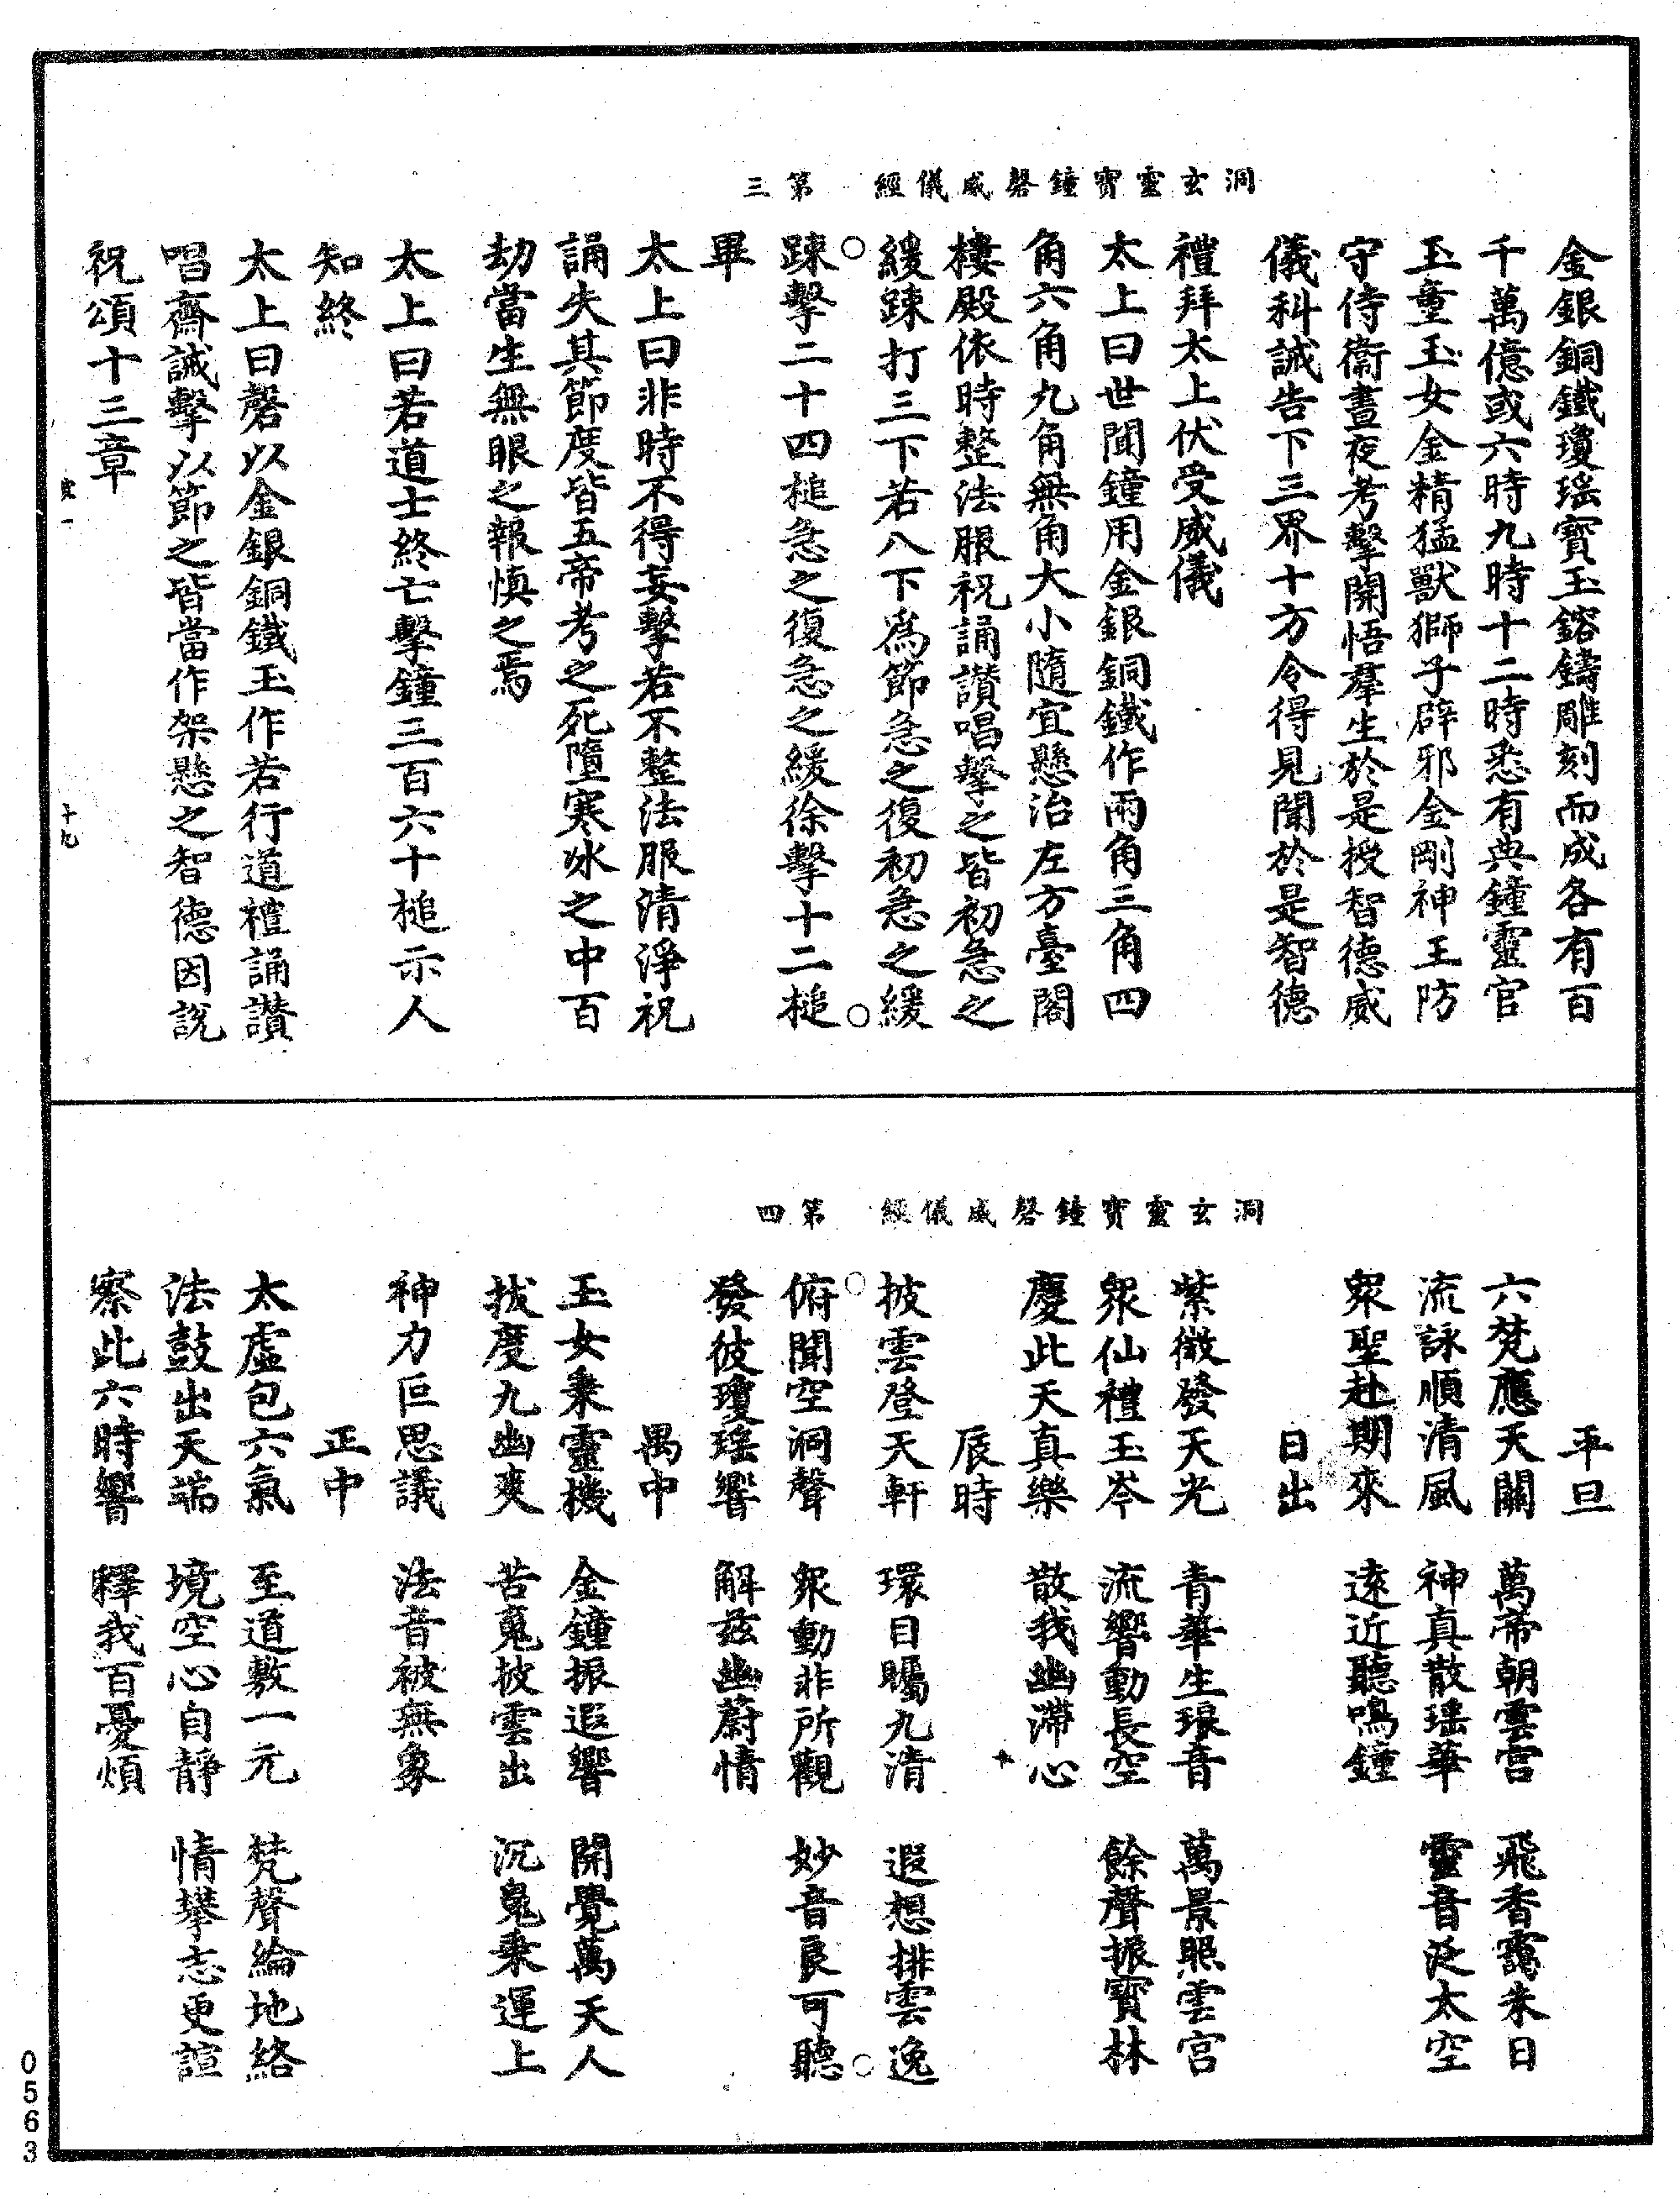 洞玄靈寶鐘磬威儀經　第三
金銀銅鐵瓊瑤寶玉鎔鑄雕刻而成各有百
千萬億或六時九時十二時悉有典鐘靈官
玉童玉女金精猛獸獅子辟邪金剛神王防
守侍衞晝夜考擊開悟羣生於是授智德威
儀科誡告下三界十方令得見聞於是智德
禮拜太上伏受威儀
太上曰世間鐘用金銀銅鐵作兩角三角四
角六角九角無角大小隨宜懸治左方臺閣
樓殿依時整法服祝誦讚唱擊之皆初急之
緩踈打三下若八下爲節急之復初急之緩
踈擊二十四槌急之復急之緩徐擊十二槌
畢
太上曰非時不得妄擊若不整法服清淨祝
誦失其節度皆五帝考之死墮寒冰之中百
劫當生無眼之報慎之焉
太上曰若道士終亡擊鐘三百六十槌示人
知終
太上曰磬以金銀銅鐵玉作若行道禮誦讚
唱齋誡擊以節之皆當作架懸之智德因說
祝頌十三章
十九
洞玄靈寶鐘磬威儀經　第四
平旦
六梵應天關　萬帝朝雲宮　飛香靄朱日
流詠順清風　神真散瑤華　靈音泛太空
衆聖赴期來　遠近聽鳴鐘
日出
紫微發天光　青華生琅音　萬景照雲宮
衆仙禮玉岑　流響動長空　餘聲振寶林
慶此天真樂　散我幽滯心
辰時
披雲登天軒　環目矚九清　遐想排雲逸
俯聞空洞聲　衆動非所觀　妙音良可聽
發彼瓊瑤響　解茲幽蔚情
禺中
玉女乘靈機　金鐘振遐響　開覺萬天人
拔度九幽爽　苦䰟披雲出　沉䰟乘運上
神力叵思議　法音被無象
正中
太虛包六氣　至道敷一元　梵聲綸地絡
法鼓出天端　境空心自靜　情攀志更諠
察此六時響　釋我百憂煩
0563